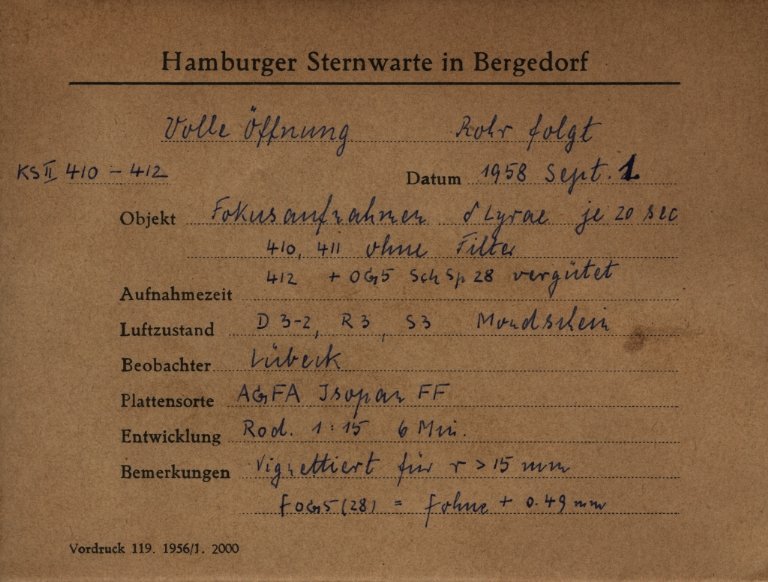 Hamburger Sternwarte in Bergedorf
Volle Öffnung Rohr folgt
KS II 410 – 412 Datum 1958 Sept. 1
Objekt Fokusaufnahmen δ Lyrae je 20 sec
410, 411 ohne Filter
412 + OG5 Sch Sp 28 vergütet
Aufnahmezeit
Luftzustand D 3-2, R3, S3 Mondschein
Beobachter Lübeck
Plattensorte AGFA Isopan FF
Entwicklung Rod. 1:15 6 Min.
Bemerkungen Vignettiert für r > 15 mm
f OG5 (28) = f ohne + 0.49 mm
Vordruck 119. 1956/1. 2000